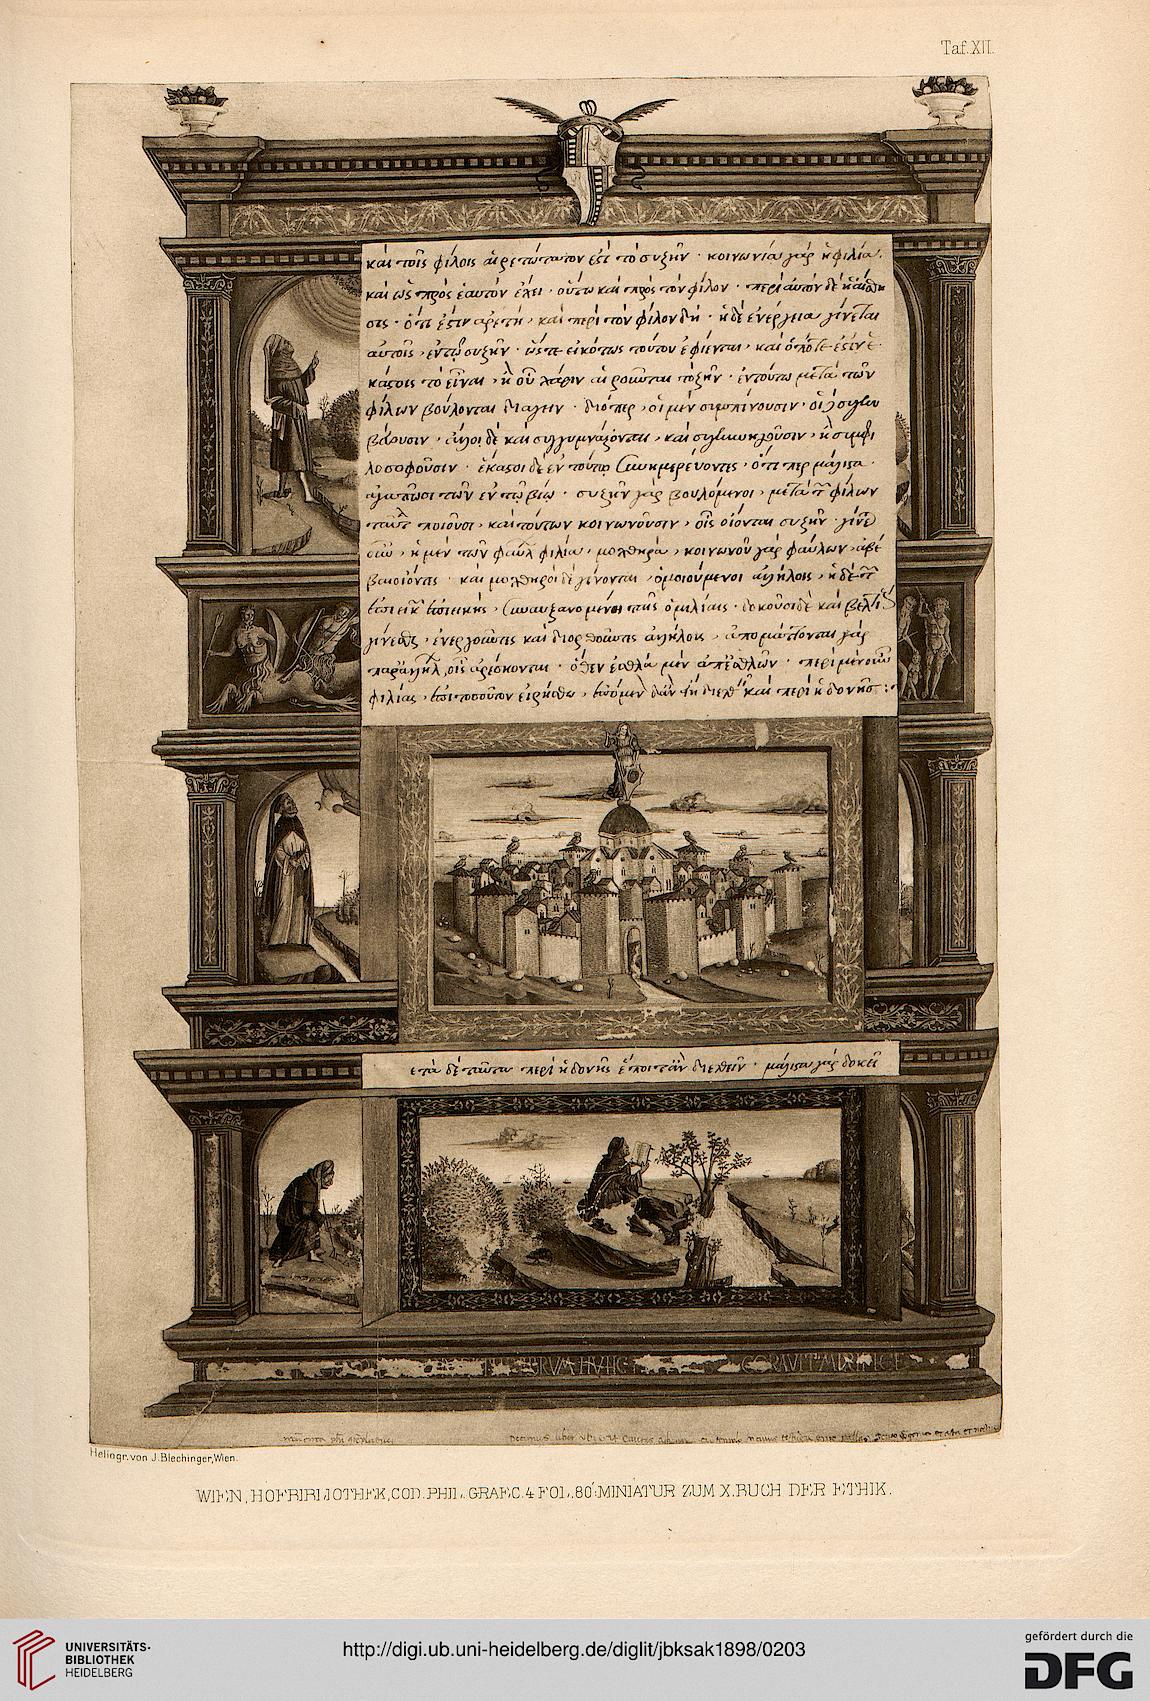 Taf. XII.
καὶ τοῖς φίλοις αἱρετώτατόν ἐστι τὸ συζῆν · κοινωνία γὰρ ἡ φιλία.
καὶ ὡς πρὸς ἑαυτὸν ἔχει · οὕτω καὶ πρὸς τὸν φίλον · περὶ αὑτὸν δὲ ἡ αἴσθη
σις · ὅτι ἐστιν αἱρετὴ, καὶ περὶ τὸν φίλον δὴ · ἡ δὲ ἐνέργεια γίνεται
αὐτοῖς, ἐν τῷ συζῆν · ὥστε εἰκότως τούτου ἐφίενται, καὶ ὅ ποτέ ἐστιν ἑ
κάστοις τὸ εἶναι, ἢ οὗ χάριν αἱροῦνται τὸ ζῆν · ἐν τούτω μετὰ τῶν
φίλων βούλονται διάγειν · διόπερ, οἱ μὲν συμπίνουσιν · οἱ δὲ συγκυ
βεύουσιν · ἄλλοι δὲ καὶ συγγυμνάζονται, καὶ συγκυνηγοῦσιν, ἢ συμφι
λοσοφοῦσιν · ἕκαστοι δὲ ἐν τούτω συνημερεύοντες, ὅτι περ μάλιστα
ἀγαπῶσι τῶν ἐν τῶ βίω · συζῆν γὰρ βουλόμενοι, μετὰ τῶν φίλων
ταῦτα ποιοῦσι, καὶ τούτων κοινωνοῦσιν, οἷς οἴονται συζῆν · γίνε
ται οὖν, ἡ μὲν τῶν φαύλων φιλία, μοχθηρά, κοινωνοῦσι γὰρ φαύλων, ἀβέ
βαιοι ὄντες · καὶ μοχθηροὶ δὲ γίνονται, ὁμοιούμενοι ἀλλήλοις, ἡ δὲ τῶν
ἐπιεικῶν ἐπιεικὴς, συναυξανομένη ταῖς ὁμιλίαις · δοκοῦσι δὲ καὶ βελτίους
γίνεσθαι, ἐνεργοῦντες καὶ διορθοῦντες ἀλλήλους, ἀπομάττονται γὰρ
παρ' ἀλλήλων, οἷς ἀρέσκονται · ὅθεν ἐσθλὰ μὲν ἀπ' ἐσθλῶν · περὶ μὲν οὖν
φιλίας, ἐπὶ τοσοῦτον εἰρήσθω, ἑπόμενον δ' ἂν εἴη διελθεῖν καὶ περὶ ἡδονῆς :
ετὰ δὲ ταῦτα περὶ ἡδονῆς ἕποιτ' ἂν διελθεῖν · μάλιστα γὰρ δοκεῖ
Heliogr. von J. Blechinger, Wien.
WIEN, HOFBIBLIOTHEK, COD. PHIL. GRAEC. 4 FOL. 80': MINIATUR ZUM X. BUCH DER ETHIK.
UNIVERSITÄTS-
BIBLIOTHEK
HEIDELBERG
http://digi.ub.uni-heidelberg.de/diglit/jbksak1898/0203
gefördert durch die
DFG